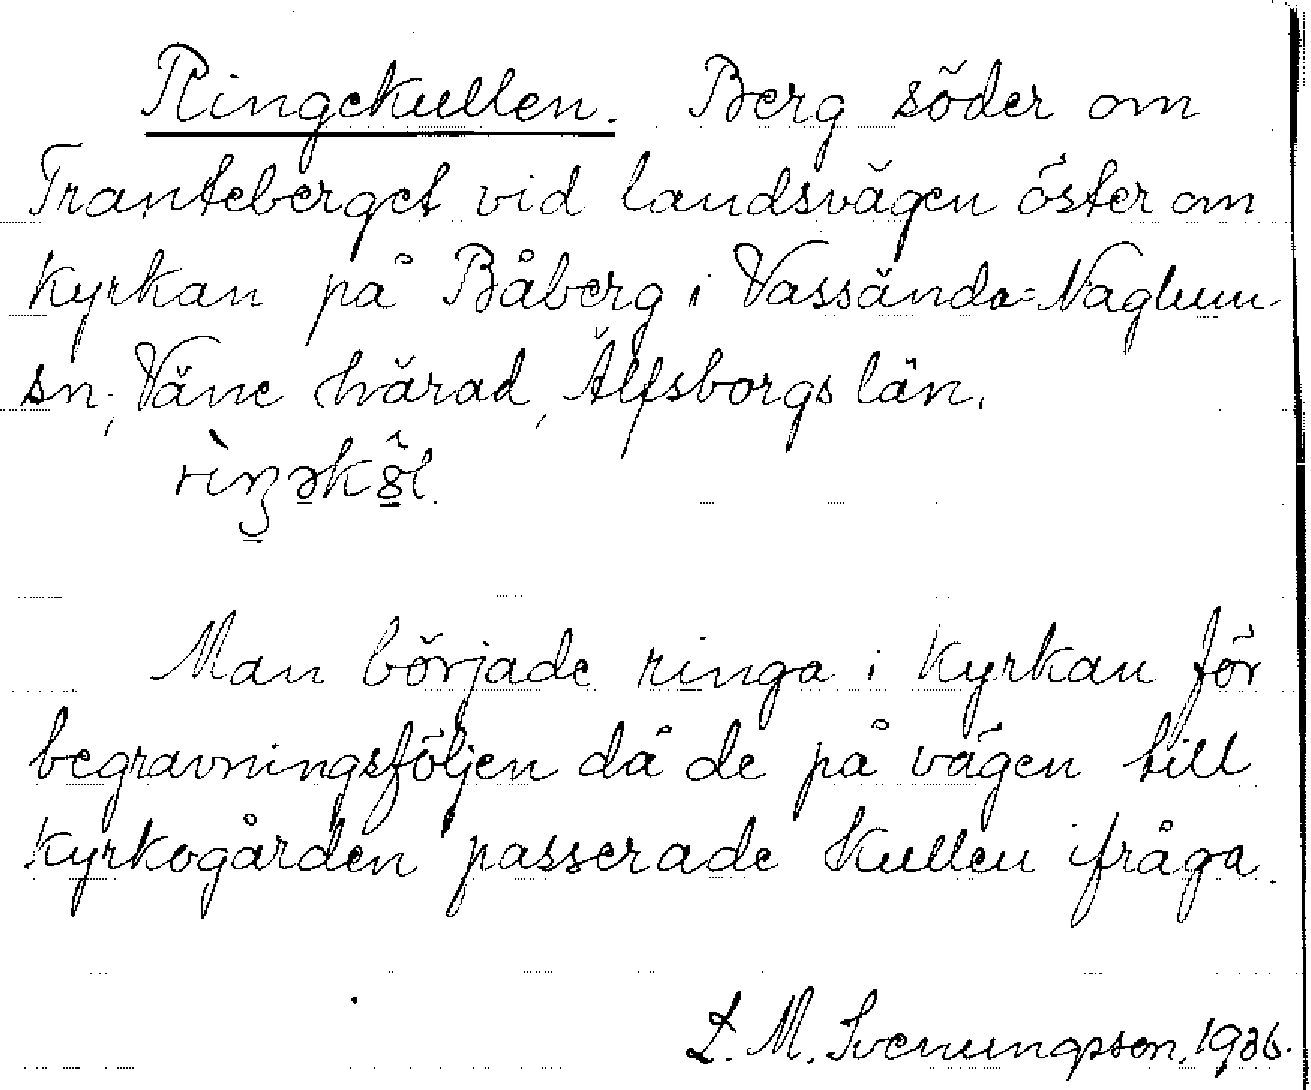 Ringekullen. Berg söder om
Tranteberget vid landsvägen öster om
kyrkan på Båberg i Vassända-Naglum
sn, Väne härad, Älfsborgs län.
Man började ringa i kyrkan för
begravningsföljen då de på vägen till
kyrkogården passerade kullen ifråga.
L. M. Svenungsson, 1936.